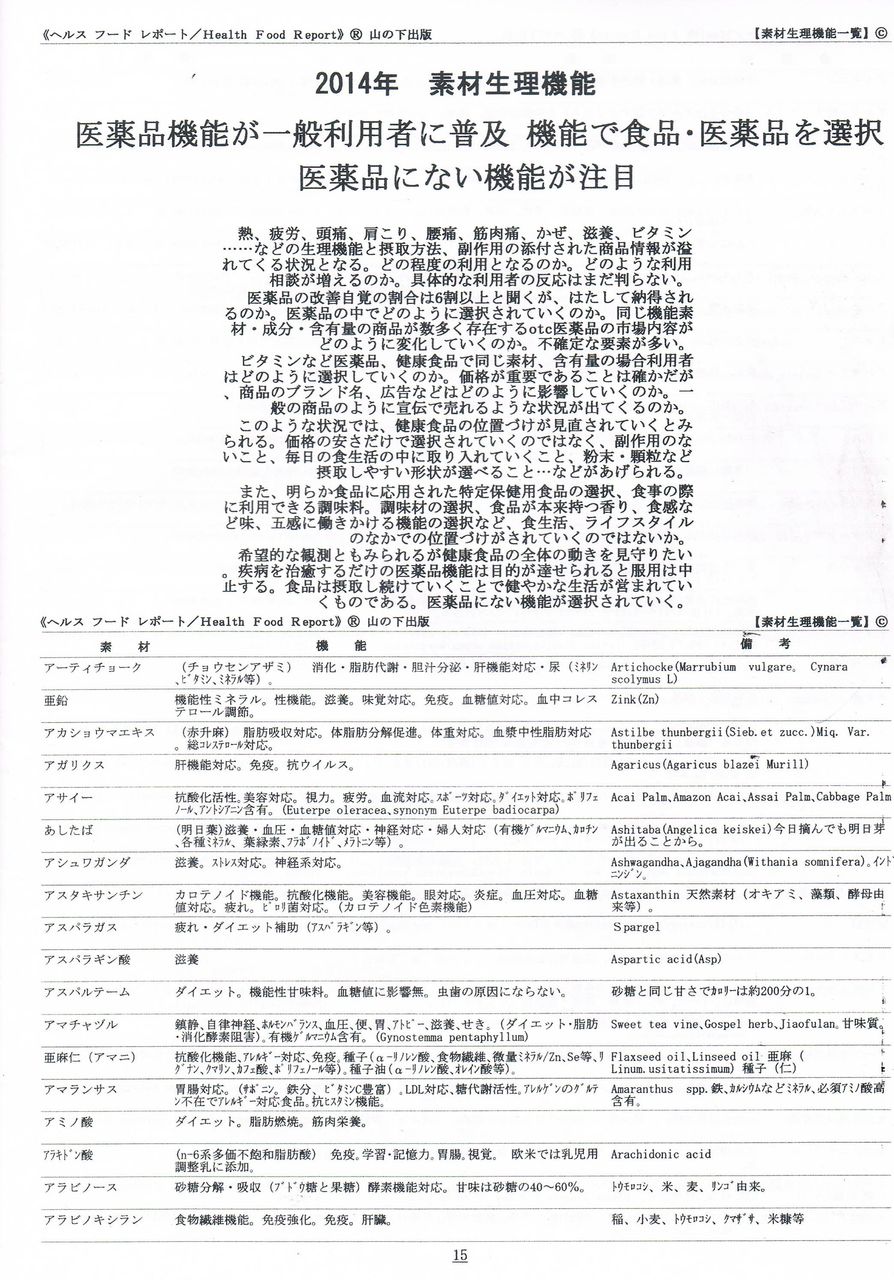 《ヘルス フード レポート／Health Food Report》® 山の下出版　【素材生理機能一覧】©
2014年　素材生理機能
医薬品機能が一般利用者に普及 機能で食品・医薬品を選択
医薬品にない機能が注目
熱、疲労、頭痛、肩こり、腰痛、筋肉痛、かぜ、滋養、ビタミン
……などの生理機能と摂取方法、副作用の添付された商品情報が溢
れてくる状況となる。どの程度の利用となるのか。どのような利用
相談が増えるのか。具体的な利用者の反応はまだ判らない。
医薬品の改善自覚の割合は6割以上と聞くが、はたして納得され
るのか。医薬品の中でどのように選択されていくのか。同じ機能素
材・成分・含有量の商品が数多く存在するotc医薬品の市場内容が
どのように変化していくのか。不確定な要素が多い。
ビタミンなど医薬品、健康食品で同じ素材、含有量の場合利用者
はどのように選択していくのか。価格が重要であることは確かだが
、商品のブランド名、広告などはどのように影響していくのか。一
般の商品のように宣伝で売れるような状況が出てくるのか。
このような状況では、健康食品の位置づけが見直されていくとみ
られる。価格の安さだけで選択されていくのではなく、副作用のな
いこと、毎日の食生活の中に取り入れていくこと、粉末・顆粒など
摂取しやすい形状が選べること…などがあげられる。
また、明らか食品に応用された特定保健用食品の選択、食事の際
に利用できる調味料。調味材の選択、食品が本来持つ香り、食感な
ど味、五感に働きかける機能の選択など、食生活、ライフスタイル
のなかでの位置づけがされていくのではないか。
希望的な観測ともみられるが健康食品の全体の動きを見守りたい
。疾病を治癒するだけの医薬品機能は目的が達せられると服用は中
止する。食品は摂取し続けていくことで健やかな生活が営まれてい
くものである。医薬品にない機能が選択されていく。
《ヘルス フード レポート／Health Food Report》® 山の下出版　【素材生理機能一覧】©
素　材　機　能　備　考
アーティチョーク　（チョウセンアザミ）　消化・脂肪代謝・胆汁分泌・肝機能対応・尿（ﾐﾈﾘﾝ　Artichocke(Marrubium vulgare。 Cynara
、ﾋﾞﾀﾐﾝ、ﾐﾈﾗﾙ等）。　scolymus L)
亜鉛　機能性ミネラル。性機能。滋養。味覚対応。免疫。血糖値対応。血中コレス　Zink(Zn)
テロール調節。
アカショウマエキス　（赤升麻） 脂肪吸収対応。体脂肪分解促進。体重対応。血漿中性脂肪対応　Astilbe thunbergii(Sieb.et zucc.)Miq. Var.
。総ｺﾚｽﾃﾛｰﾙ対応。　thunbergii
アガリクス　肝機能対応。免疫。抗ウイルス。　Agaricus(Agaricus blazei Murill)
アサイー　抗酸化活性。美容対応。視力。疲労。血流対応。ｽﾎﾟｰﾂ対応。ﾀﾞｲｴｯﾄ対応。ﾎﾟﾘﾌｪ　Acai Palm、Amazon Acai、Assai Palm、Cabbage Palm
ﾉｰﾙ、ｱﾝﾄｼｱﾆﾝ含有。(Euterpe oleracea、synonym Euterpe badiocarpa)
あしたば　(明日葉)滋養・血圧・血糖値対応・神経対応・婦人対応（有機ｹﾞﾙﾏﾆｳﾑ、ｶﾛﾁﾝ　Ashitaba(Angelica keiskei)今日摘んでも明日芽
、各種ﾐﾈﾗﾙ、葉緑素、ﾌﾗﾎﾞﾉｲﾄﾞ、ﾒﾗﾄﾆﾝ等）。　が出ることから。
アシュワガンダ　滋養。ｽﾄﾚｽ対応。神経系対応。　Ashwagandha、Ajagandha(Withania somnifera)。ｲﾝﾄﾞ
ﾆﾝｼﾞﾝ。
アスタキサンチン　カロテノイド機能。抗酸化機能。美容機能。眼対応。炎症。血圧対応。血糖　Astaxanthin 天然素材（オキアミ、藻類、酵母由
値対応。疲れ。ﾋﾟﾛﾘ菌対応。（カロテノイド色素機能）　来等）。
アスパラガス　疲れ・ダイエット補助（ｱｽﾊﾟﾗｷﾞﾝ等）。　Ｓpargel
アスパラギン酸　滋養　Aspartic acid(Asp)
アスパルテーム　ダイエット。機能性甘味料。血糖値に影響無。虫歯の原因にならない。　砂糖と同じ甘さでｶﾛﾘｰは約200分の1。
アマチャヅル　鎮静、自律神経、ﾎﾙﾓﾝﾊﾞﾗﾝｽ、血圧、便、胃、ｱﾄﾋﾟｰ、滋養、せき。（ダイエット・脂肪　Sweet tea vine、Gospel herb、Jiaofulan。甘味質。
・消化酵素阻害)。有機ｹﾞﾙﾏﾆｳﾑ含有。(Gynostemma pentaphyllum)
亜麻仁（アマニ）　抗酸化機能、ｱﾚﾙｷﾞｰ対応、免疫。種子(α-ﾘﾉﾚﾝ酸、食物繊維、微量ﾐﾈﾗﾙ/Zn、Se等、ﾘ　Flaxseed oil、Linseed oil 亜麻（
ｸﾞﾅﾝ、ｸﾏﾘﾝ、ｶﾌｪ酸、ﾎﾟﾘﾌｪﾉｰﾙ等)。種子油(α-ﾘﾉﾚﾝ酸、ｵﾚｲﾝ酸等)。　Linum.usitatissimum） 種子（仁）
アマランサス　胃腸対応。(ｻﾎﾟﾆﾝ。鉄分、ﾋﾞﾀﾐﾝC豊富）。LDL対応、糖代謝活性。ｱﾚﾙｹﾞﾝのｸﾞﾙﾃ　Amaranthus spp.鉄、ｶﾙｼｳﾑなどﾐﾈﾗﾙ、必須ｱﾐﾉ酸高
ﾝ不在でｱﾚﾙｷﾞｰ対応食品。抗ﾋｽﾀﾐﾝ機能。　含有。
アミノ酸　ダイエット。脂肪燃焼。筋肉栄養。
ｱﾗｷﾄﾞﾝ酸　(n-6系多価不飽和脂肪酸)　免疫。学習・記憶力。胃腸。視覚。 欧米では乳児用　Arachidonic acid
調整乳に添加。
アラビノース　砂糖分解・吸収（ﾌﾞﾄﾞｳ糖と果糖）酵素機能対応。甘味は砂糖の40～60%。　ﾄｳﾓﾛｺｼ、米、麦、ﾘﾝｺﾞ由来。
アラビノキシラン　食物繊維機能。免疫強化。免疫。肝臓。　稲、小麦、ﾄｳﾓﾛｺｼ、ｸﾏｻﾞｻ、米糠等
15